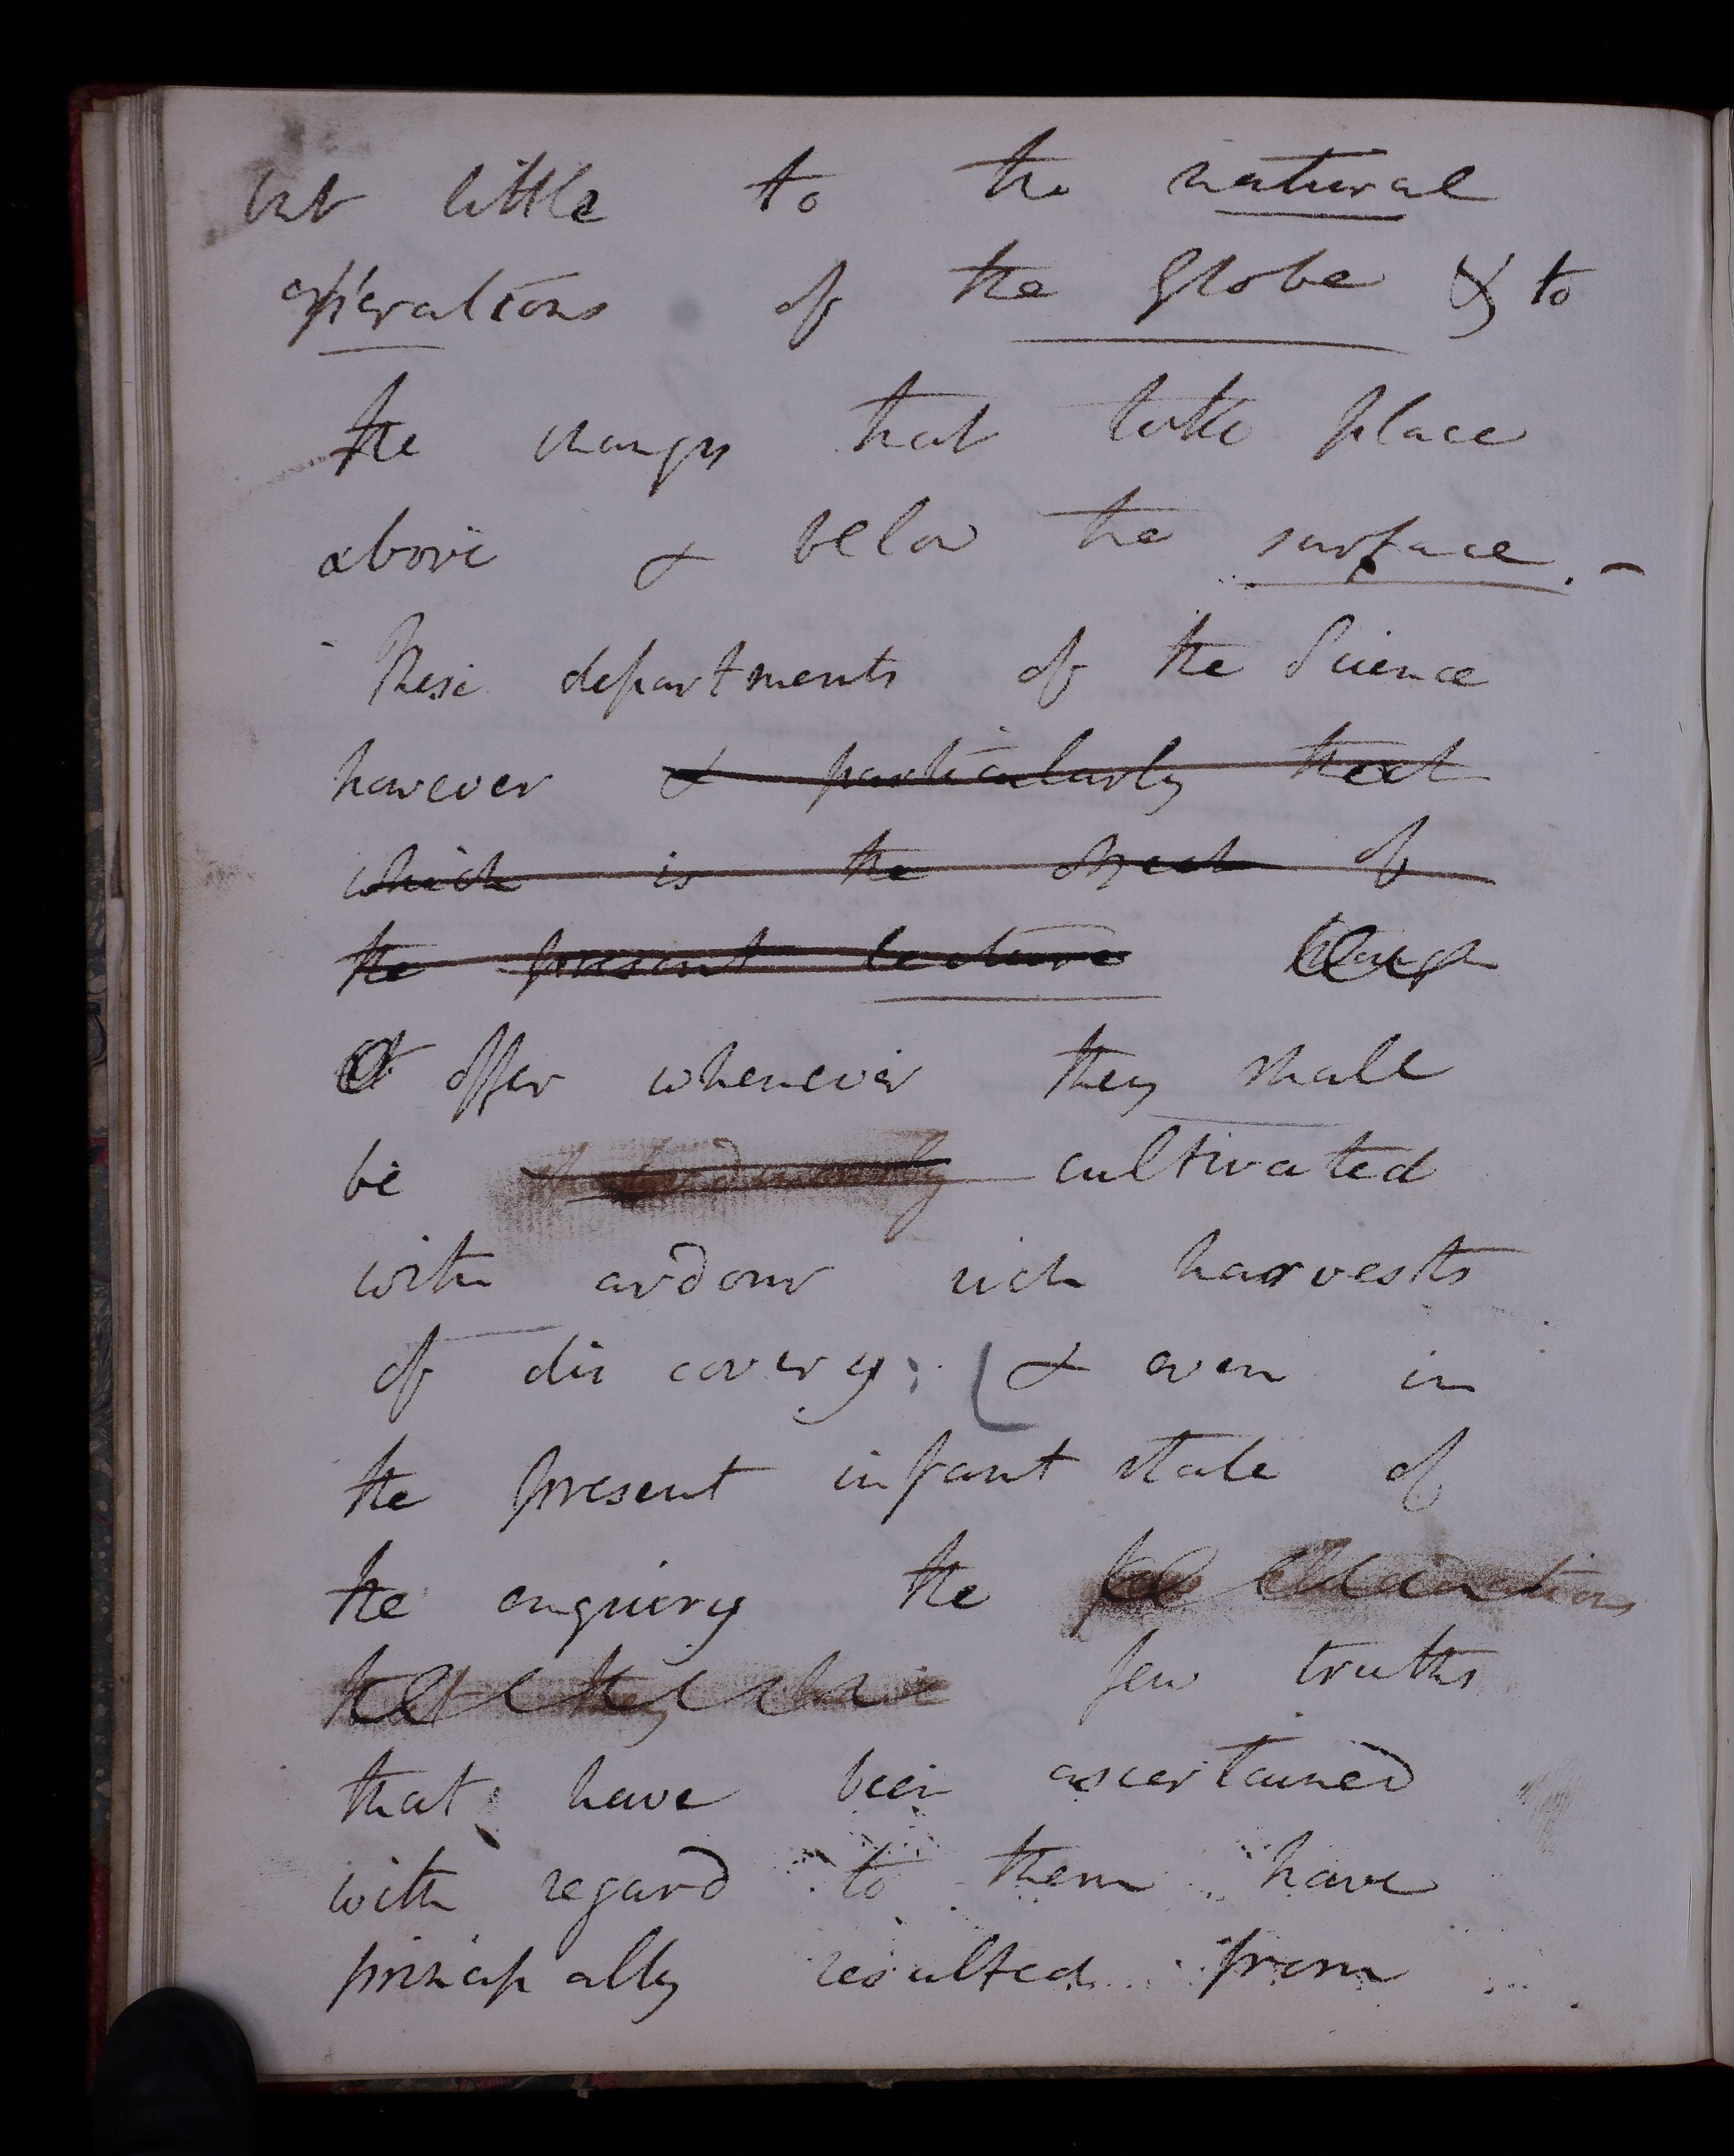 but little to the natural
operations of the Globe & to
the changes that take place
above & below the surface. -
These departments of the Science
however & particularly that
which is the object of
the present lecture
offer whenever they shall
be cultivated
with ardour rich harvests
of dis covery; & even in
the present infant state of
the enquiry the elucidations
that they have few truths
that have been ascertained
with regard to them have
princip ally resulted from